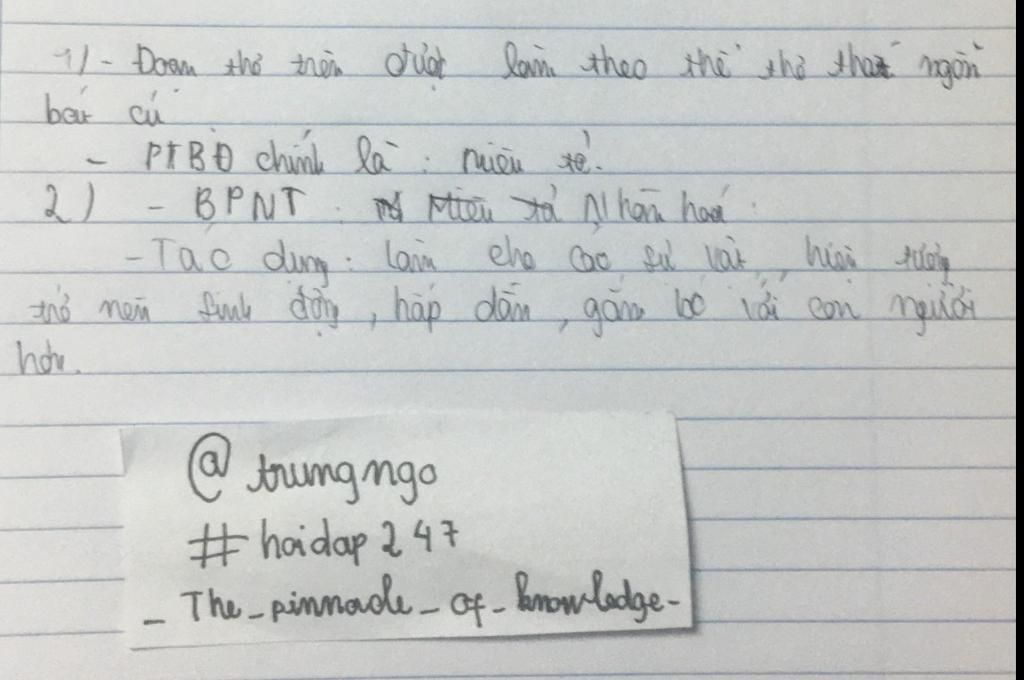 1) - Đoạn thơ trên được làm theo thể thơ thất ngôn
bát cú
- PTBĐ chính là : miêu tả.
2) - BPNT : Miêu tả Nhân hoá.
- Tác dụng : làm cho các sự vật, hiện tượng
trở nên sinh động, hấp dẫn, gắn bó với con người
hơn.
@trungngo
#hoidap247
_The_pinnacle_of_knowledge_